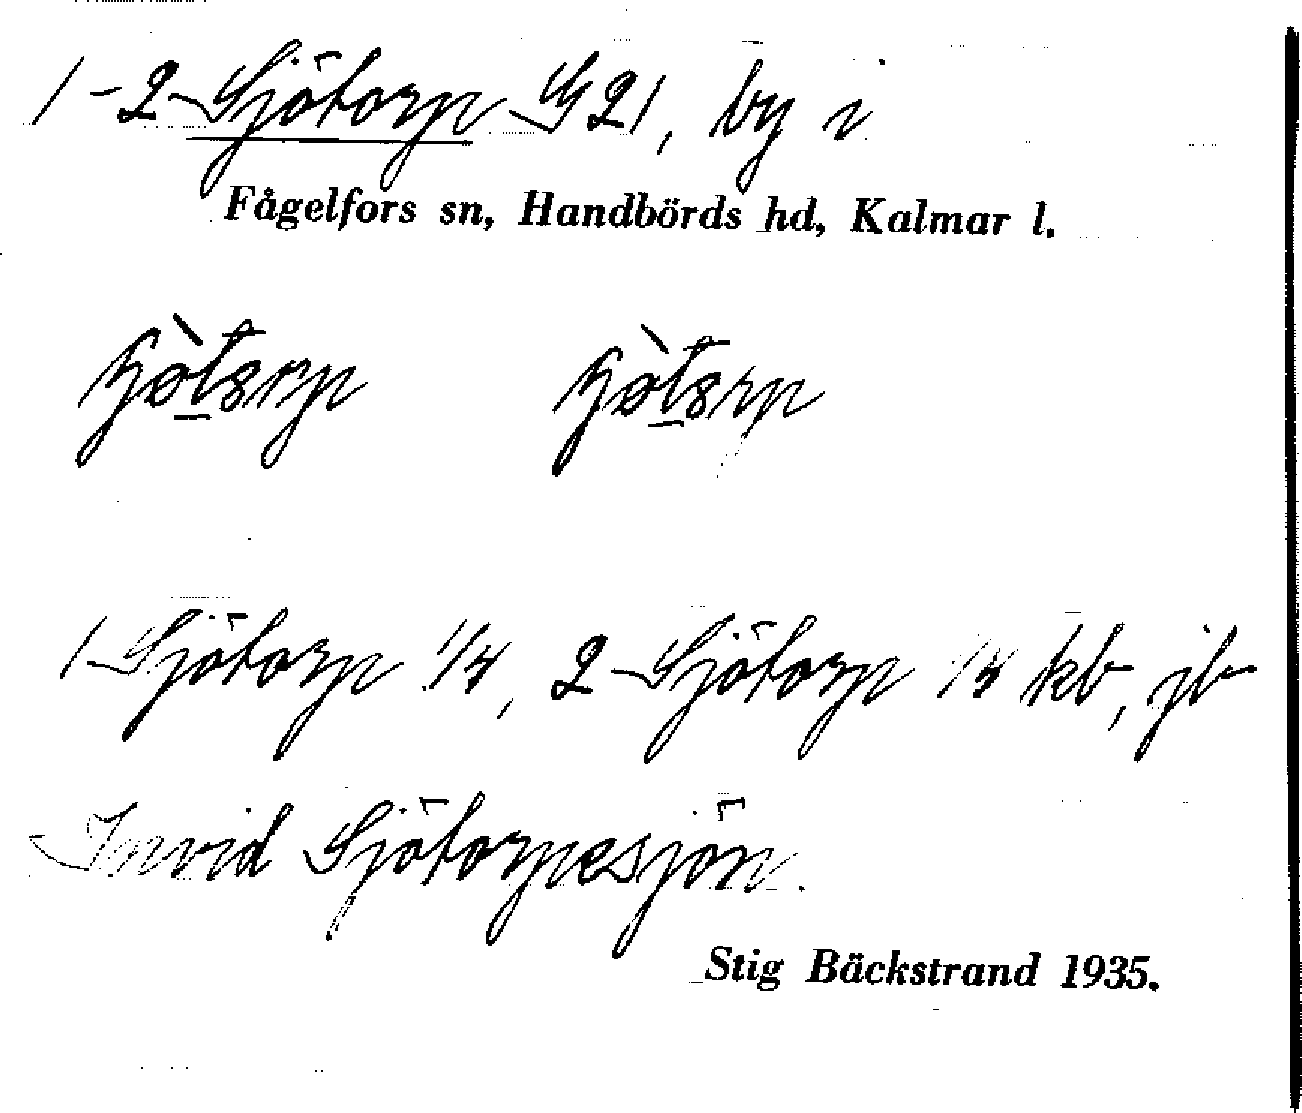 1-2 Sjötorp G 21, by i
Fågelfors sn, Handbörds hd, Kalmar l.
1 Sjötorp 1/4, 2 Sjötorp 1/4 kb, jb
Invid Sjötorpesjön.
Stig Bäckstrand 1935.